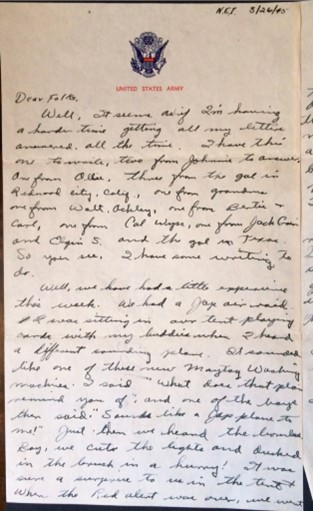 N.E.I. 3/26/45
UNITED STATES ARMY
Dear Folks,
Well, it seems as if I'm having
a harder time getting all my letters
answered, all the time. I have this
one to write, two from Johnnie to answer,
one from Ollie, three from the gal in
Redwood city, Calif, one from grandma
one from Walt. Ockley, one from Bertie &
Carl, one from Cal, one from Jack
and S. and the gal in Texas.
So you see, I have some writing to
do.
Well, we have had a little experience
this week. We had a Jap air raid.
I was sitting in our tent playing
cards with my buddies when I heard
a different sounding plane. It sounded
like one of those new Maytag Washing
machines. I said "What does that plane
remind you of", and one of the boys
then said "Sounds like a Jap plane to
me!" Just then we heard the
we cut the lights and ducked
in the brush in a hurry! It was
sure a surprise to us in the tent &
when the Red alert was over, we went